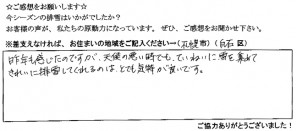 ☆ご感想をお願いします☆
今シーズンの排雪はいかがでしたか？
お客様の声が、私たちの原動力になっています。ぜひ、ご感想をお聞かせ下さい。
※差支えなければ、お住まいの地域をご記入ください→（札幌市）（白石区）
昨年も感じたのですが、天候の悪い時でも、ていねいに雪を集めて
きれいに排雪してくれるのは、とても気持が良いです。
ご協力ありがとうございました！